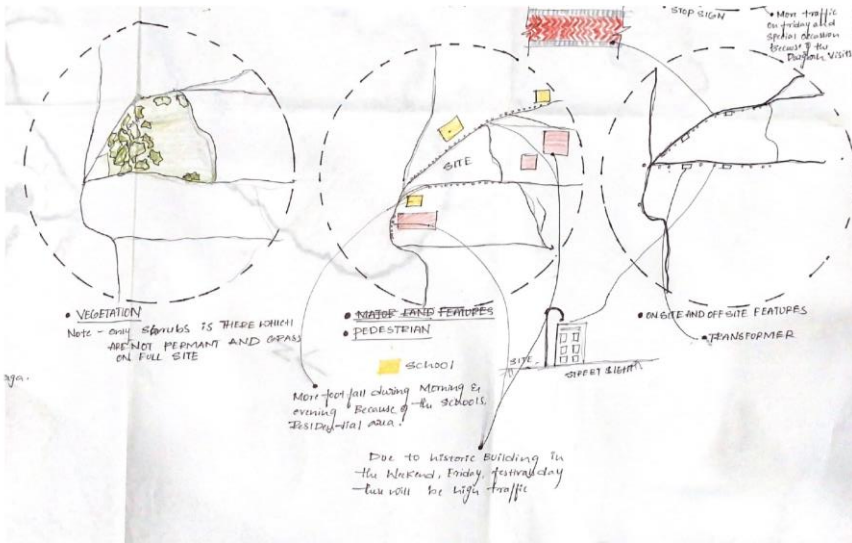 • STOP SIGN
• More traffic
on friday and
special occassion
because of the
Dargah Visits
SITE
• VEGETATION
Note - only shrubs is there which
are not permant and grass
on full site
• MAJOR LAND FEATURES
• PEDESTRIAN
SCHOOL
• ON SITE AND OFF SITE FEATURES
• TRANSFORMER
SITE
STREET LIGHT
aga.
More foot fall during Morning &
evening Because of the schools,
area.
Due to historic Building in
the Weekend, Friday, festival day
there will be high traffic